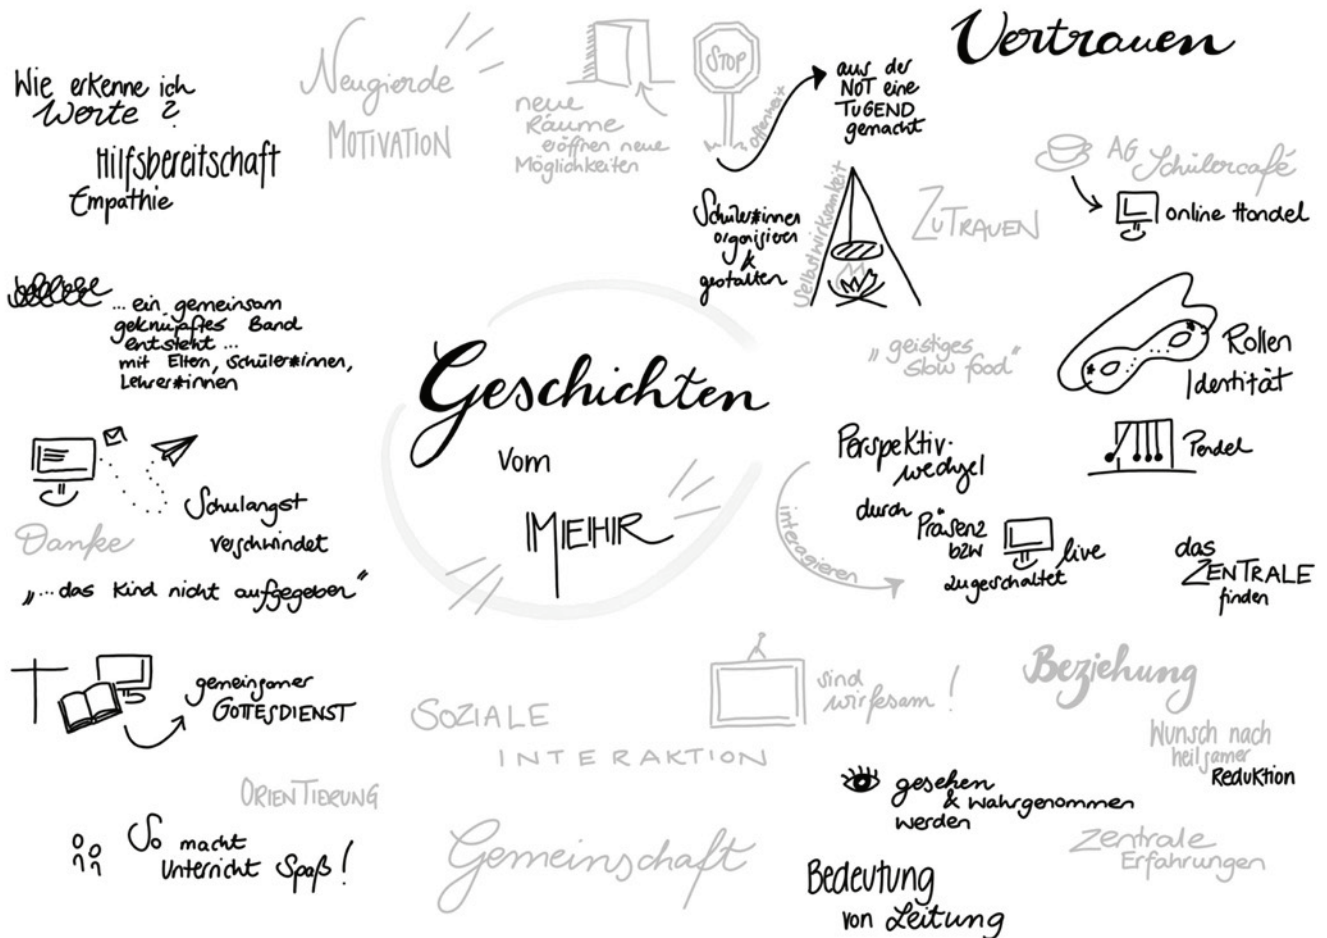 Wie erkenne ich
Werte?
Hilfsbereitschaft
Empathie
Neugierde
MOTIVATION
neue
Räume
eröffnen neue
Möglichkeiten
STOP
Offenheit
aus der
NOT eine
TUGEND
gemacht
Vertrauen
AG Schülercafé
online Handel
Schüler*innen
organisieren
&
gestalten
Selbstwirksamkeit
ZUTRAUEN
... ein gemeinsam
geknüpftes Band
entsteht ...
mit Eltern, Schüler*innen,
Lehrer*innen
Geschichten
vom
MEHR
„geistiges
slow food"
Rollen
Identität
Perspektiv-
wechsel
durch
Präsenz
bzw
live
zugeschaltet
interagieren
Pendel
das
ZENTRALE
finden
Schulangst
verschwindet
Danke
„... das Kind nicht aufgegeben"
gemeinsamer
GOTTESDIENST
SOZIALE
INTERAKTION
sind
wirksam!
Beziehung
Wunsch nach
heilsamer
Reduktion
ORIENTIERUNG
So macht
Unterricht Spaß!
Gemeinschaft
gesehen
& wahrgenommen
werden
Zentrale
Erfahrungen
Bedeutung
von Leitung